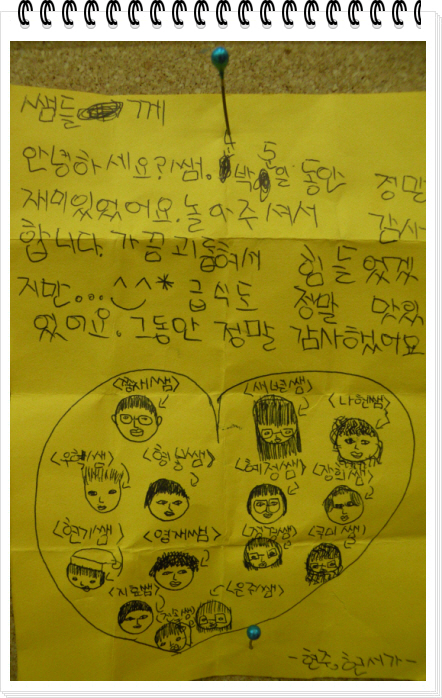 쌤들 께
안녕하세요?!쌤. 두 박 일 동안 정말
재미있었어요. 놀아주셔서 감사
합니다. 가끔 괴롭혀서 힘들었겠
지만...^^* 급식도 정말 맛있
었어요. 그동안 정말 감사했어요
<새별쌤>
<나현쌤>
<형재쌤>
<혜정쌤>
<현기쌤>
<영재쌤>
<은주쌤>
-현주, 현서가-